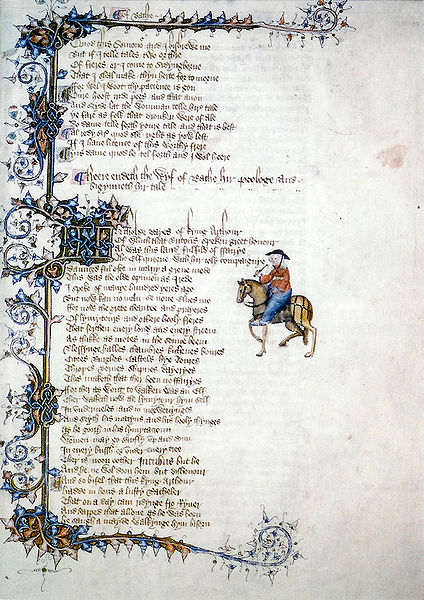 Of Bathe
Quod this Somonour and I bishrewe me
But if I telle tales two or thre
Of freres er I come to Sidyngborne
That I shal make thyn herte for to morne
For wel I woot thy pacience is gon
Oure hoost cride pees and that anon
And seyde lat the womman telle hire tale
Ye fare as folk that dronken were of ale
Do dame telle forth youre tale and that is best
Al redy sire quod she right as yow lest
If I haue licence of this worthy frere
Yis dame quod he tel forth and I wol heere
Heere endeth the Wyf of Bathe hir prologe And
bigynneth hir tale
In tholde dayes of kyng Arthour
Of which that Britons speken greet honour
Al was this land fulfild of ffairye
The Elf queene with hir ioly compaignye
Daunced ful ofte in many a grene mede
This was the olde opinion as I rede
I speke of manye hundred yeres ago
But now kan no man se none Elues mo
For now the grete charitee and prayeres
Of lymytours and othere hooly freres
That serchen euery lond and euery streem
As thikke as motes in the sonne beem
Blessynge halles chambres kichenes boures
Citees Burghes Castels hye Toures
Thropes Bernes Shipnes dayeryes
This maketh that ther been no ffairyes
For ther as wont to walken was an Elf
Ther walketh now the lymytour hym self
In vndermeles and in morwenynges
And seyth his matyns and his hooly thynges
As he gooth in his lymytacioun
Wommen may go saufly vp and doun
In euery bussh or vnder euery tree
Ther is noon oother Incubus but he
And he ne wol doon hem but dishonour
And so bifel that this kyng Arthour
Hadde in hous a lusty Bacheler
That on a day cam ridynge fro Ryuer
And happed that allone as he was born
He saugh a mayde walkynge hym biforn